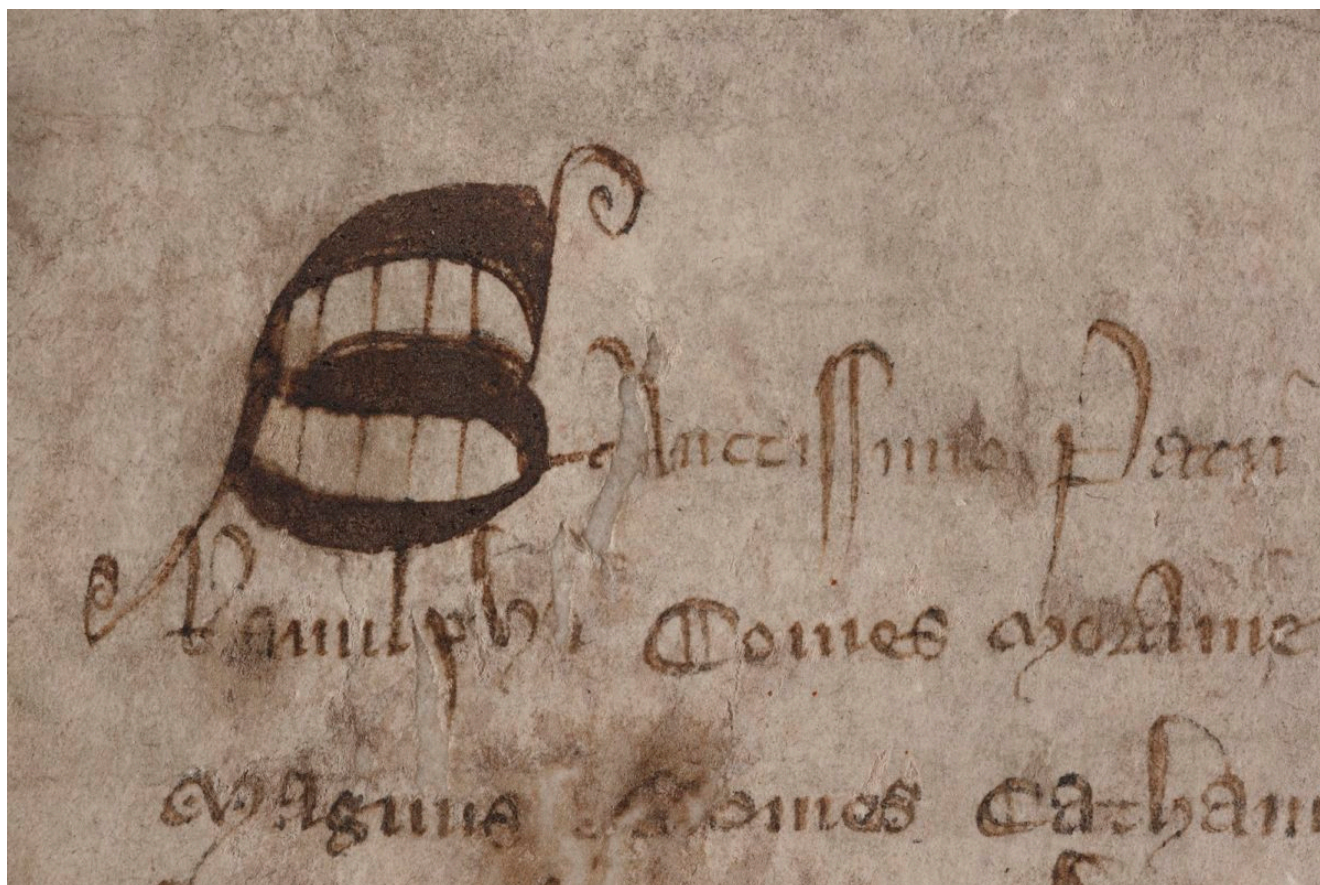 Sanctissimo Patri
Ranulphi Comes Moravie
Magnus Comes Cathani